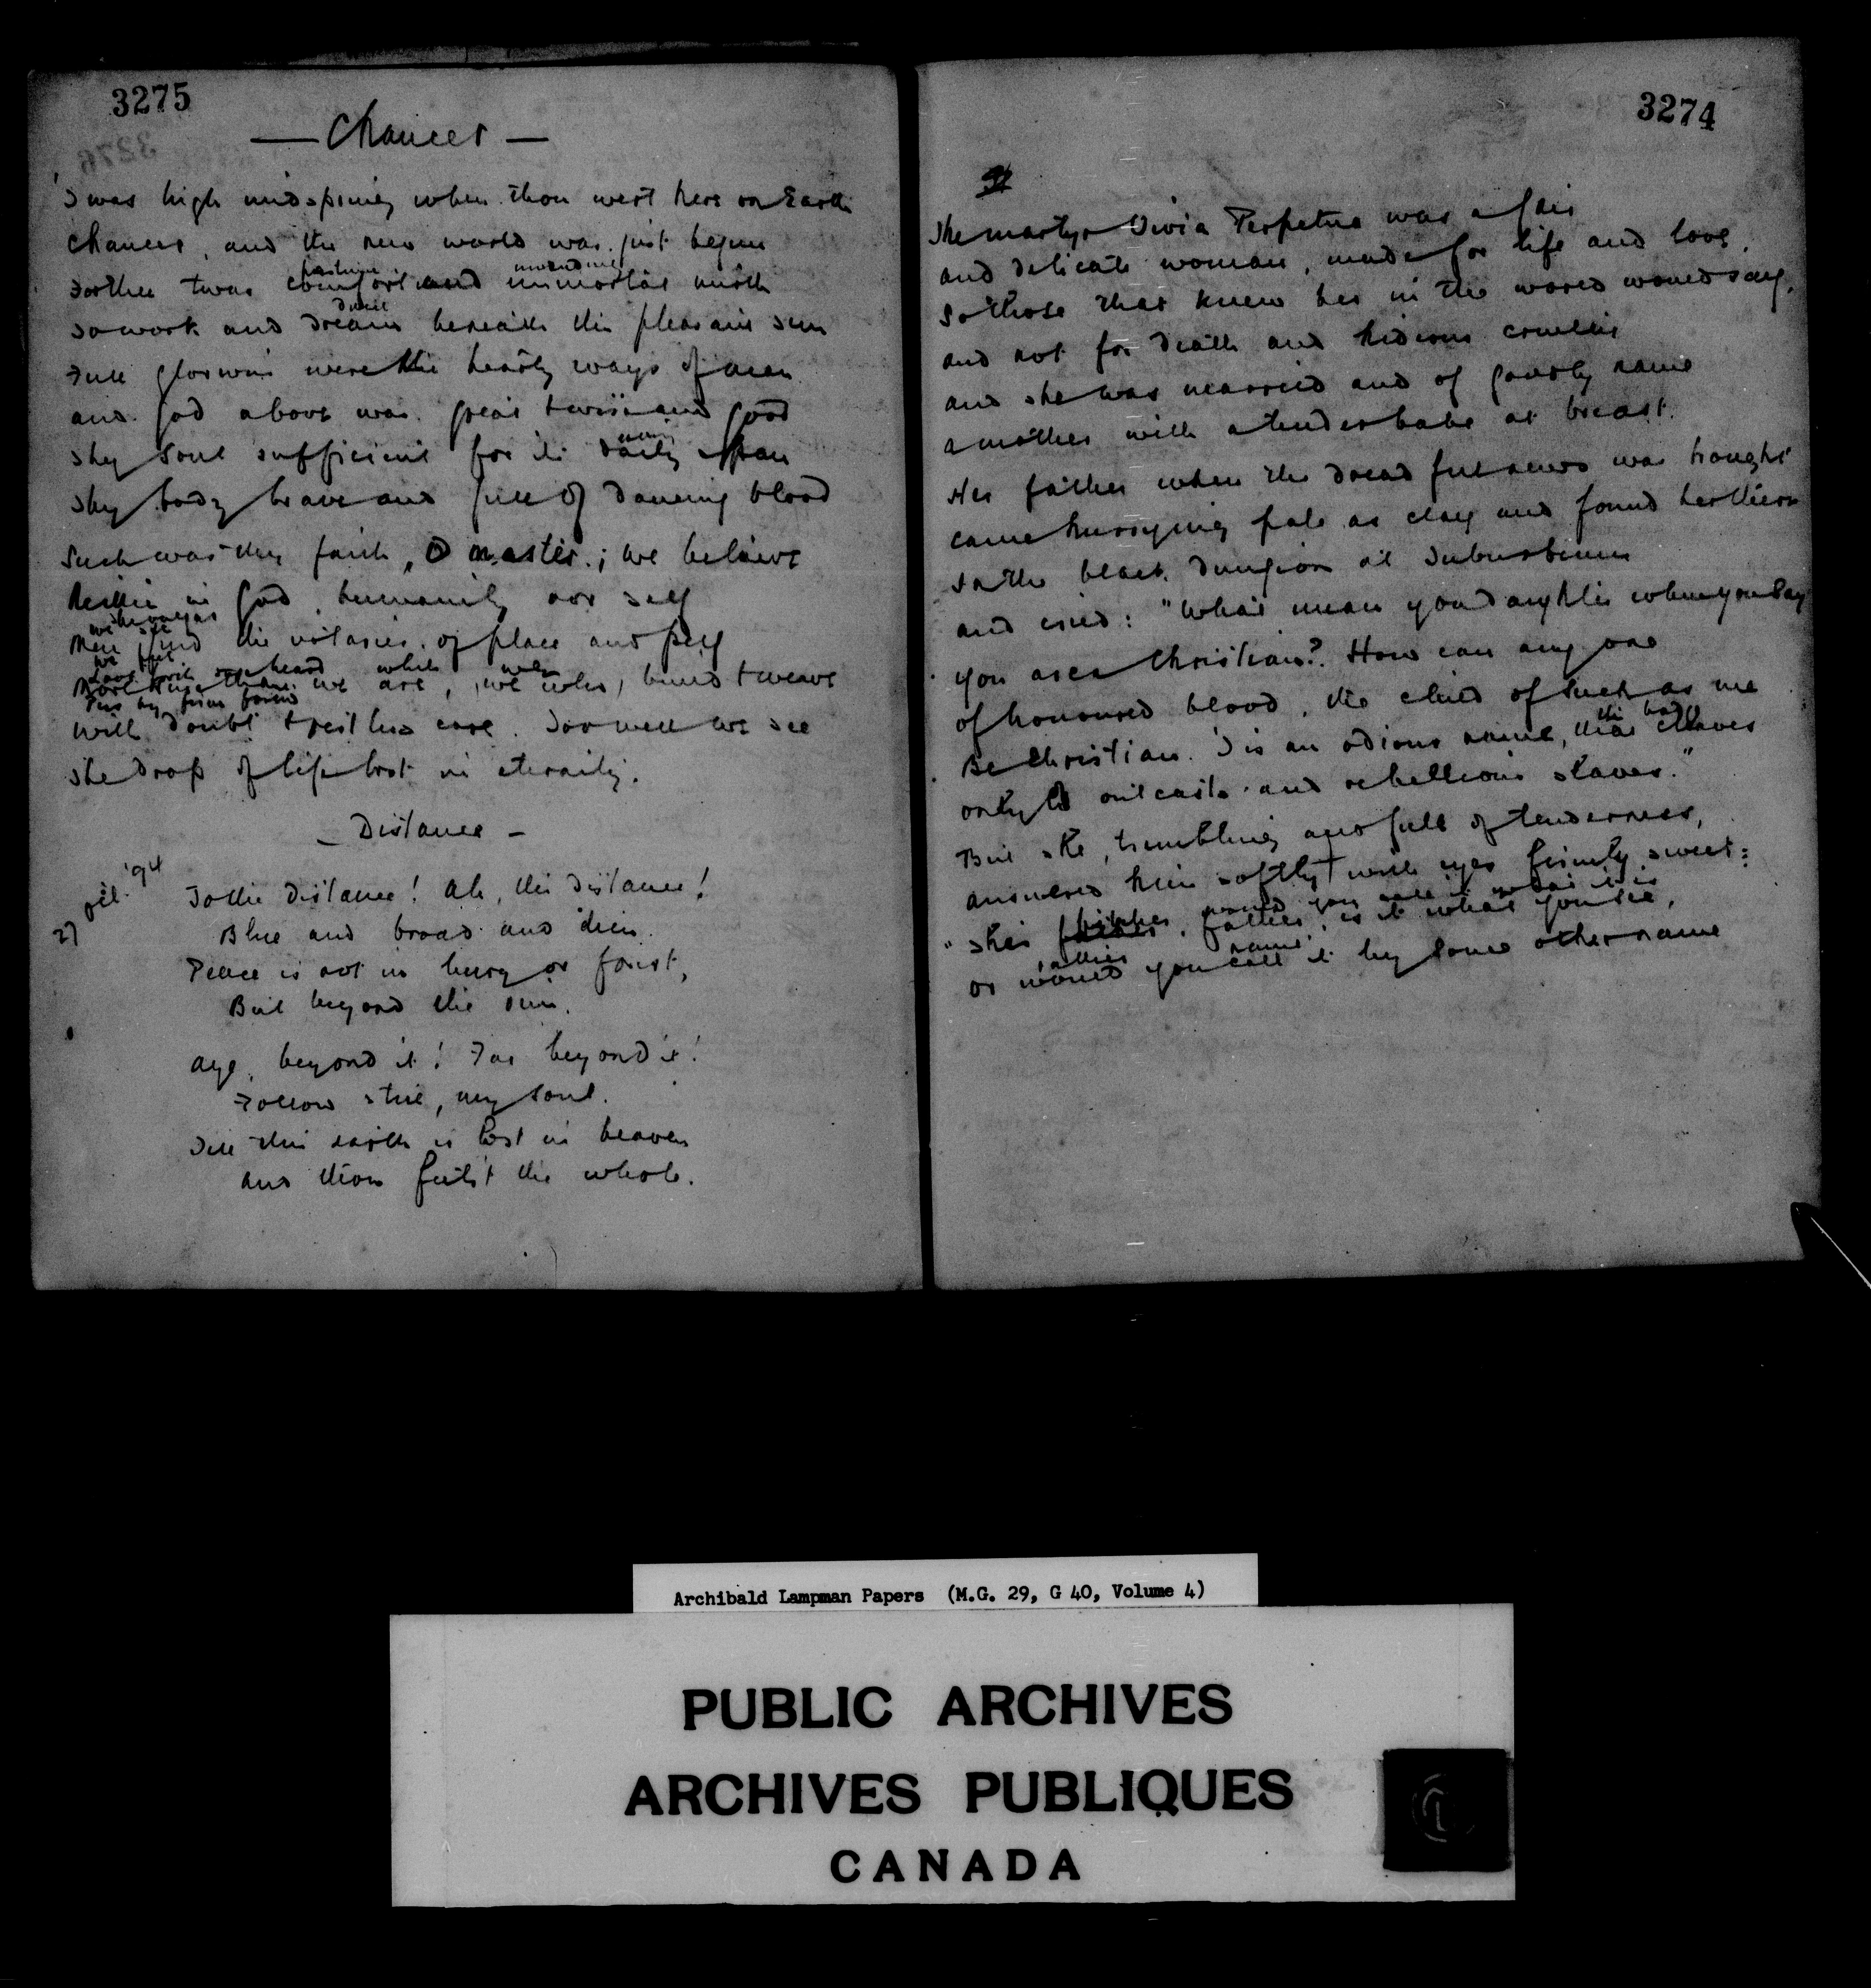 3275
— Chaucer —
'Twas high mid-spring when thou wert here on Earth
Chaucer, and the new world was just begun
For thee twas comfort and immortal mirth
pastime unending
To work and dream beneath the pleasant sun
dance
Full glorious were the hearty ways of man
And God above was great & wise and good
Thy soul sufficient for its daily span
Thy body brave and full of dancing blood
Such was thy faith, O master; we believe
Neither in God, humanity nor self
the votaries of place and pelf
we are, build & weave
With doubt & restless care. Too well we see
The drop of life lost in eternity.
— Distance —
27 Oct. '94
To the distance! Ah, the distance!
Blue and broad and dim.
Peace is not in burg or forest,
But beyond the rim.
Aye, beyond it! Far beyond it!
Follow still, my soul.
Till this earth is lost in heaven
And thou feel'st the whole.
3274
The martyr Vivia Perpetua was a fair
And delicate woman, made for life and love,
So those that knew her in the world would say,
And not for death and hideous cruelties
And she was married and of goodly name
A mother with a tender babe at breast.
Her father when the dreadful news was brought
Came hurrying pale as clay and found her there
In the black dungeon at Suburbium
And cried: "What mean you daughter when you say
You are a Christian? How can any one
Of honoured blood, the child of such as me
Be Christian. 'Tis an odious name, the badge
Only of outcasts and rebellious slaves."
But she, trembling and full of tenderness,
Answered him softly with eyes firmly sweet:
"This pitcher, father, is it what you see,
would you call it what it is
Or would you call it by some other name
Archibald Lampman Papers (M.G. 29, G 40, Volume 4)
PUBLIC ARCHIVES
ARCHIVES PUBLIQUES
CANADA